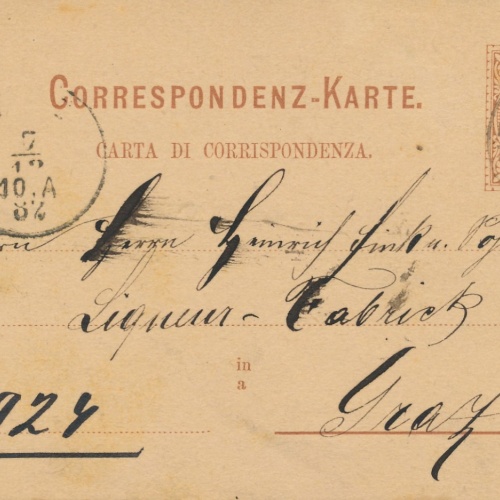 CORRESPONDENZ-KARTE.
CARTA DI CORRISPONDENZA.
7
12
10.A
82
Herrn Heinrich Fink u.
Liqueur-Fabrick
in
a
Graz
924